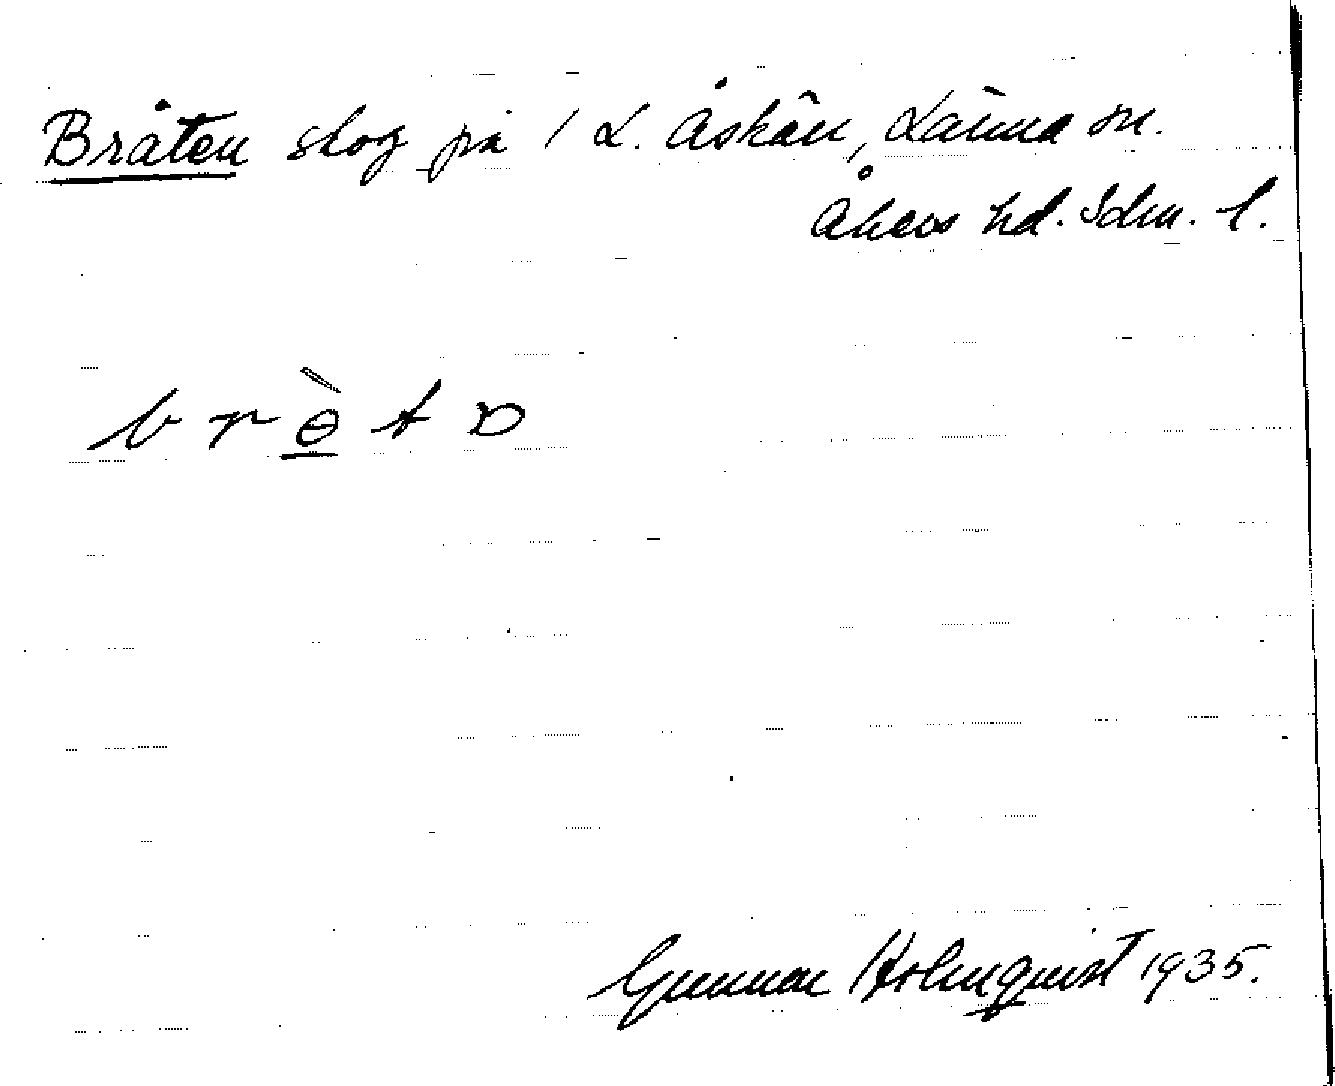 Bråten skog på 1 L. Åskån, Länna sn.
Åkers hd. Sdm. l.
b r ɵ̀ t ɒ
Gunnar Holmquist 1935.